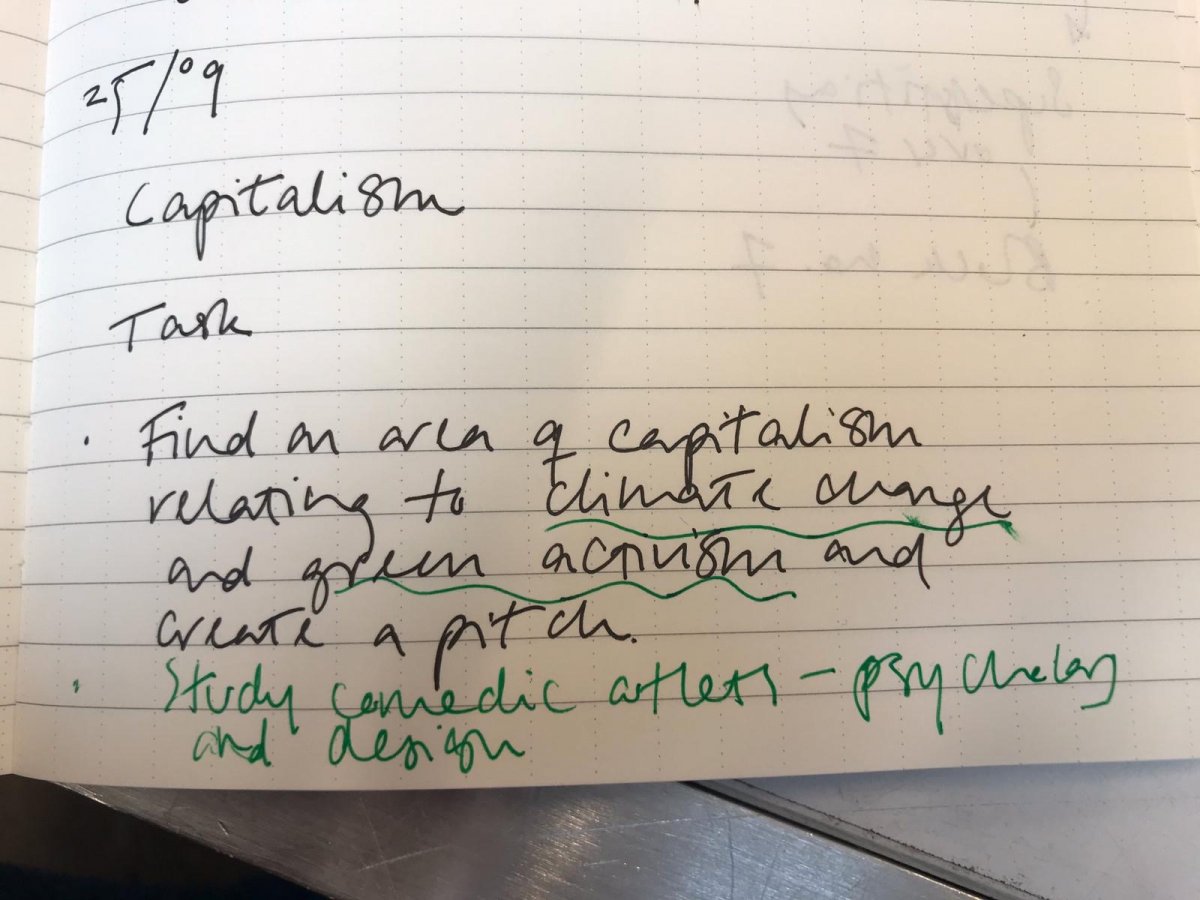 25/09
Capitalism
Task
· Find an area of capitalism
relating to climate change
and green activism and
create a pitch.
· Study comedic outlets - psychology
and design